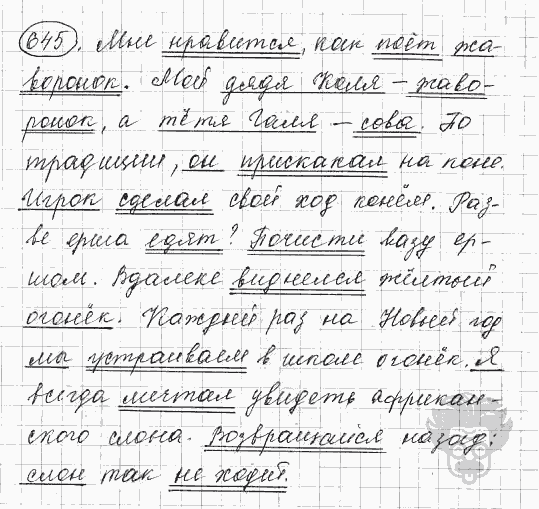 645. Мне нравится, как поёт жа-
воронок. Мой дядя Коля – жаво-
ронок, а тётя Галя – сова. По
традиции, он прискакал на коне.
Игрок сделал свой ход конём. Раз-
ве ерша едят? Почисти вазу ер-
шом. Вдалеке виднелся жёлтый
огонёк. Каждый раз на Новый год
мы устраиваем в школе огонёк. Я
всегда мечтал увидеть африкан-
ского слона. Возвращайся назад:
слон так не ходит.